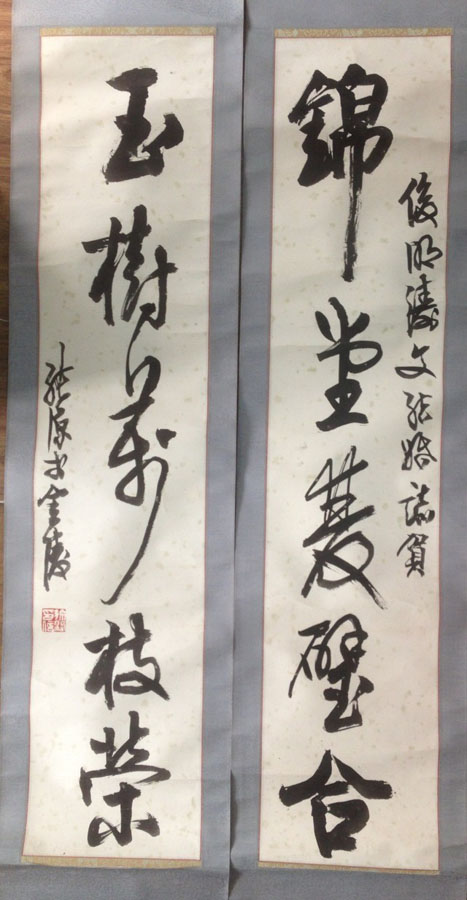 俊明濤文結婚誌賀
錦堂雙璧合
玉樹萬枝榮
原书金陵